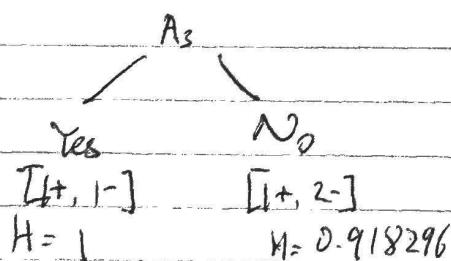 A₃
Yes No
[1+, 1-] [1+, 2-]
H = 1 H = 0.918296